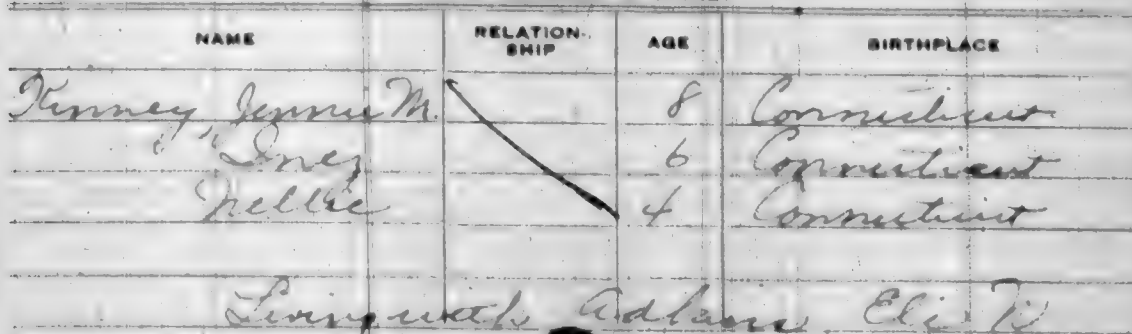 NAME RELATION-SHIP AGE BIRTHPLACE
Kinney Jennie M. 8 Connecticut
" Inez 6 Connecticut
Nellie 4 Connecticut
Living with Eli